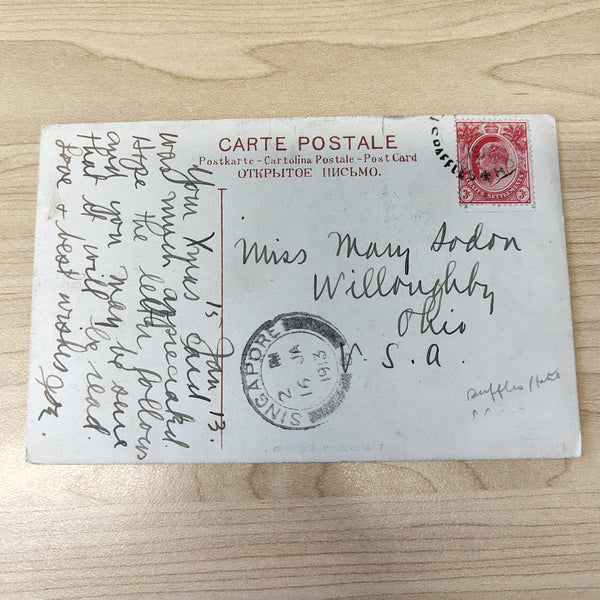 CARTE POSTALE
Postkarte - Cartolina Postale - Post Card
ОТКРЫТОЕ ПИСЬМО.
RAFFLES ★ H
SETTLEMENTS
3c 3c
15 Jan 13.
Your Xmas card
was much appreciated
Hope the letter follows
and you may be one
that it will be read.
Love & best wishes
Miss Mary
Willoughby
Ohio
U.S.A.
SINGAPORE
2 PM
16 JA
1913
Raffles